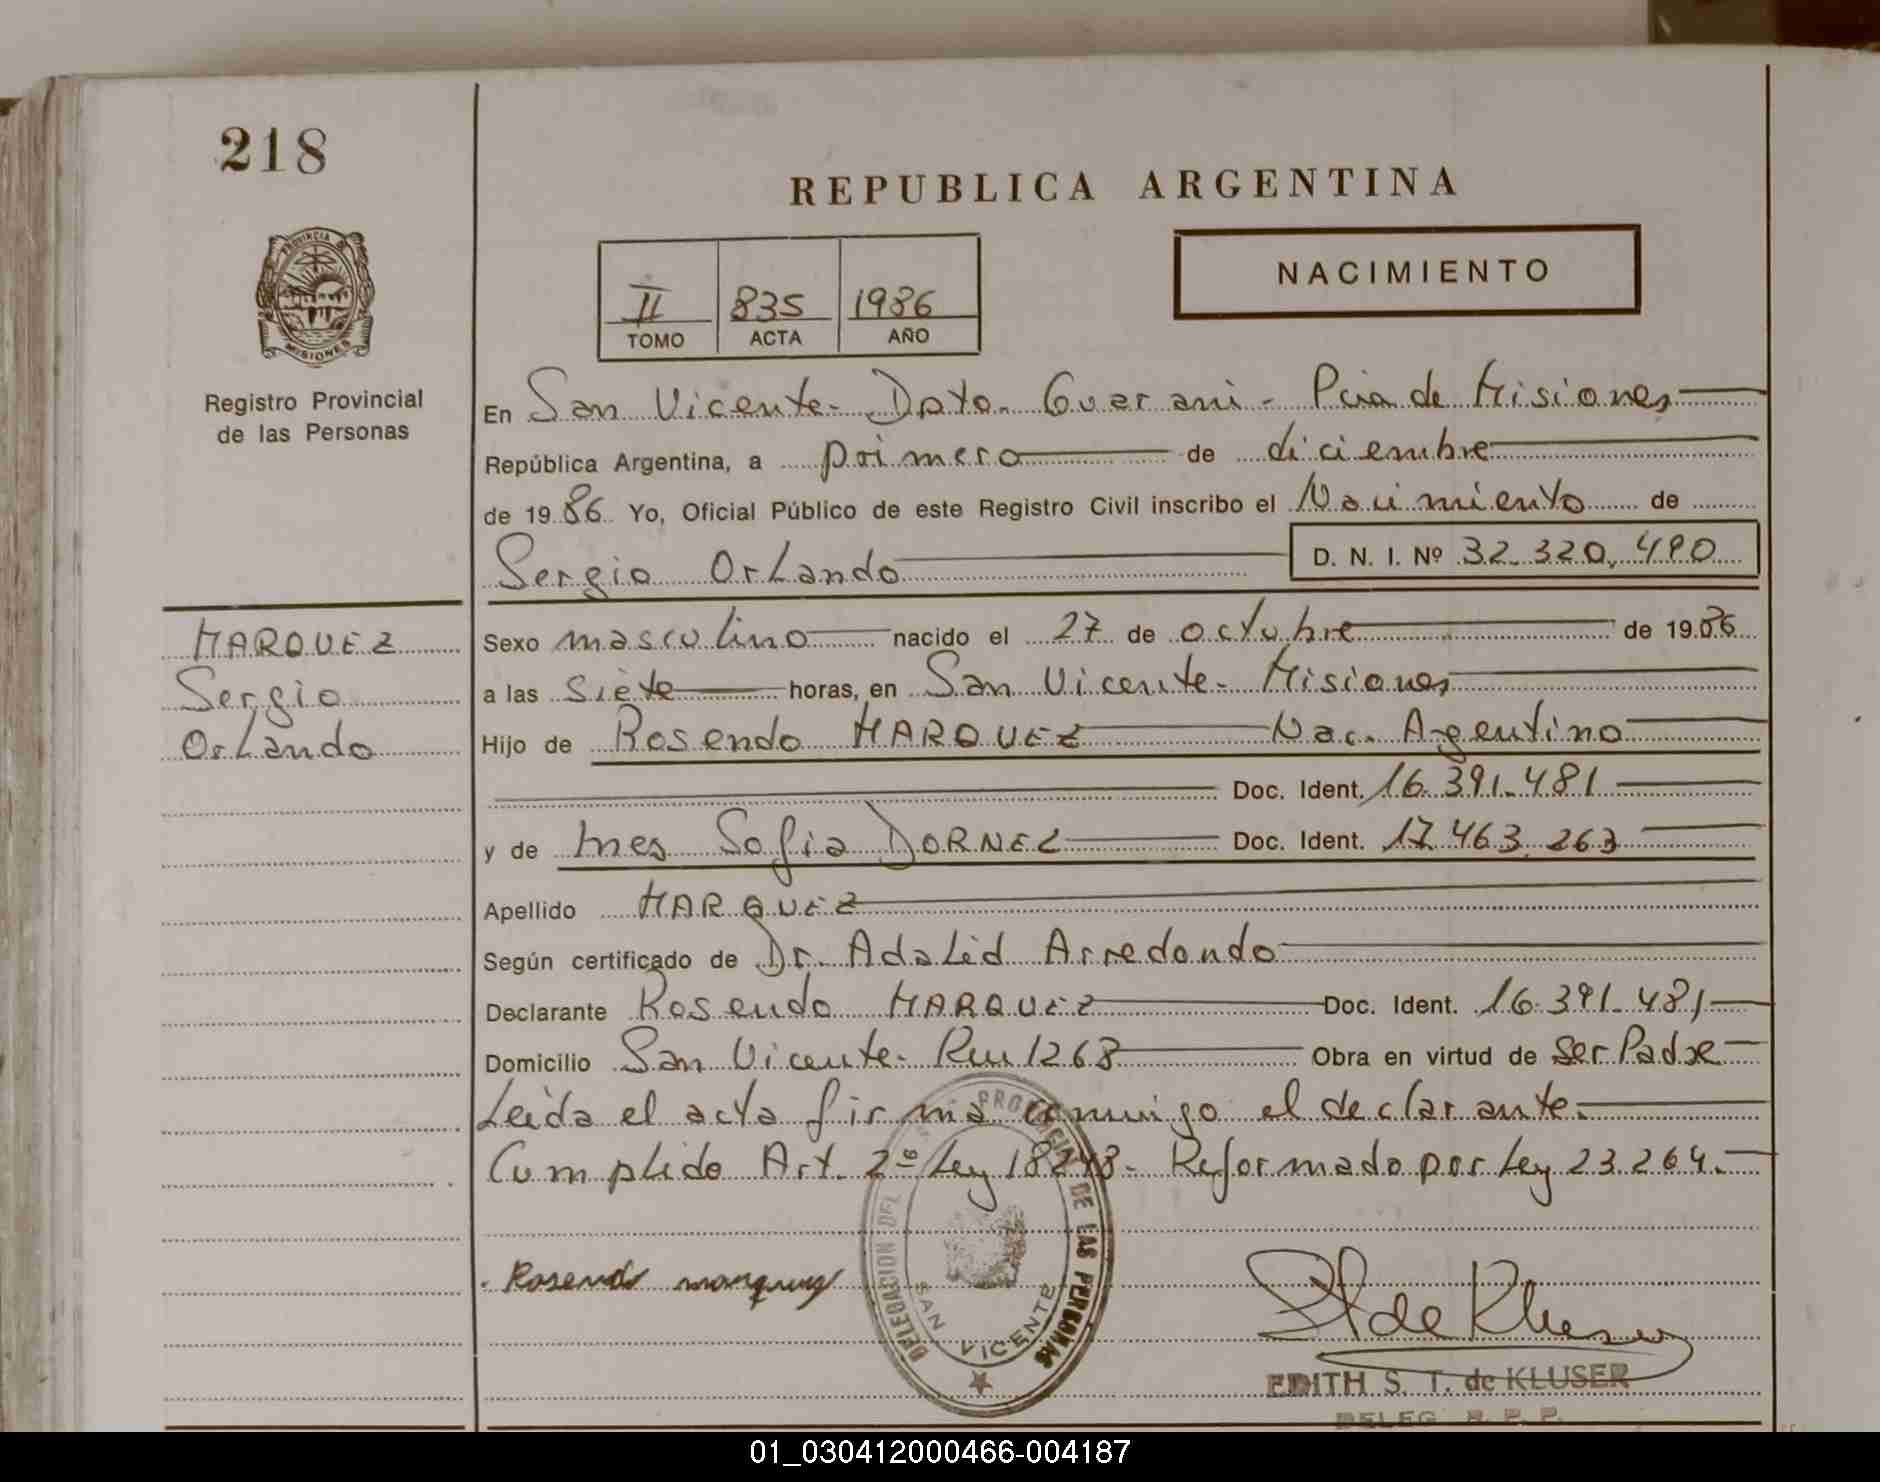 218
REPUBLICA ARGENTINA
PROVINCIA DE
MISIONES
II 835 1986
TOMO ACTA AÑO
NACIMIENTO
Registro Provincial
de las Personas
En San Vicente - Dpto. Guarani - Pcia de Misiones
República Argentina, a primero de diciembre
de 1986 Yo, Oficial Público de este Registro Civil inscribo el Nacimiento de
Sergio Orlando D. N. I. Nº 32.320.490
MARQUEZ
Sergio
Orlando
Sexo masculino nacido el 27 de octubre de 1986
a las siete horas, en San Vicente - Misiones
Hijo de Rosendo MARQUEZ Nac. Argentino
Doc. Ident. 16.391.481
y de Ines Sofia DORNEZ Doc. Ident. 17.463.263
Apellido MARQUEZ
Según certificado de Dr. Adalid Arredondo
Declarante Rosendo MARQUEZ Doc. Ident. 16.391.481
Domicilio San Vicente - Km 1268 Obra en virtud de Ser Padre
Leida el acta firma conmigo el declarante.
Cumplido Art. 2º Ley 18248 - Reformado por Ley 23.264.
Rosendo marquez
DELEGACION DEL PROVINCIAL DE LAS PERSONAS
SAN VICENTE
EDITH S. T. de KLUSER
DELEG R. P. P.
01_030412000466-004187